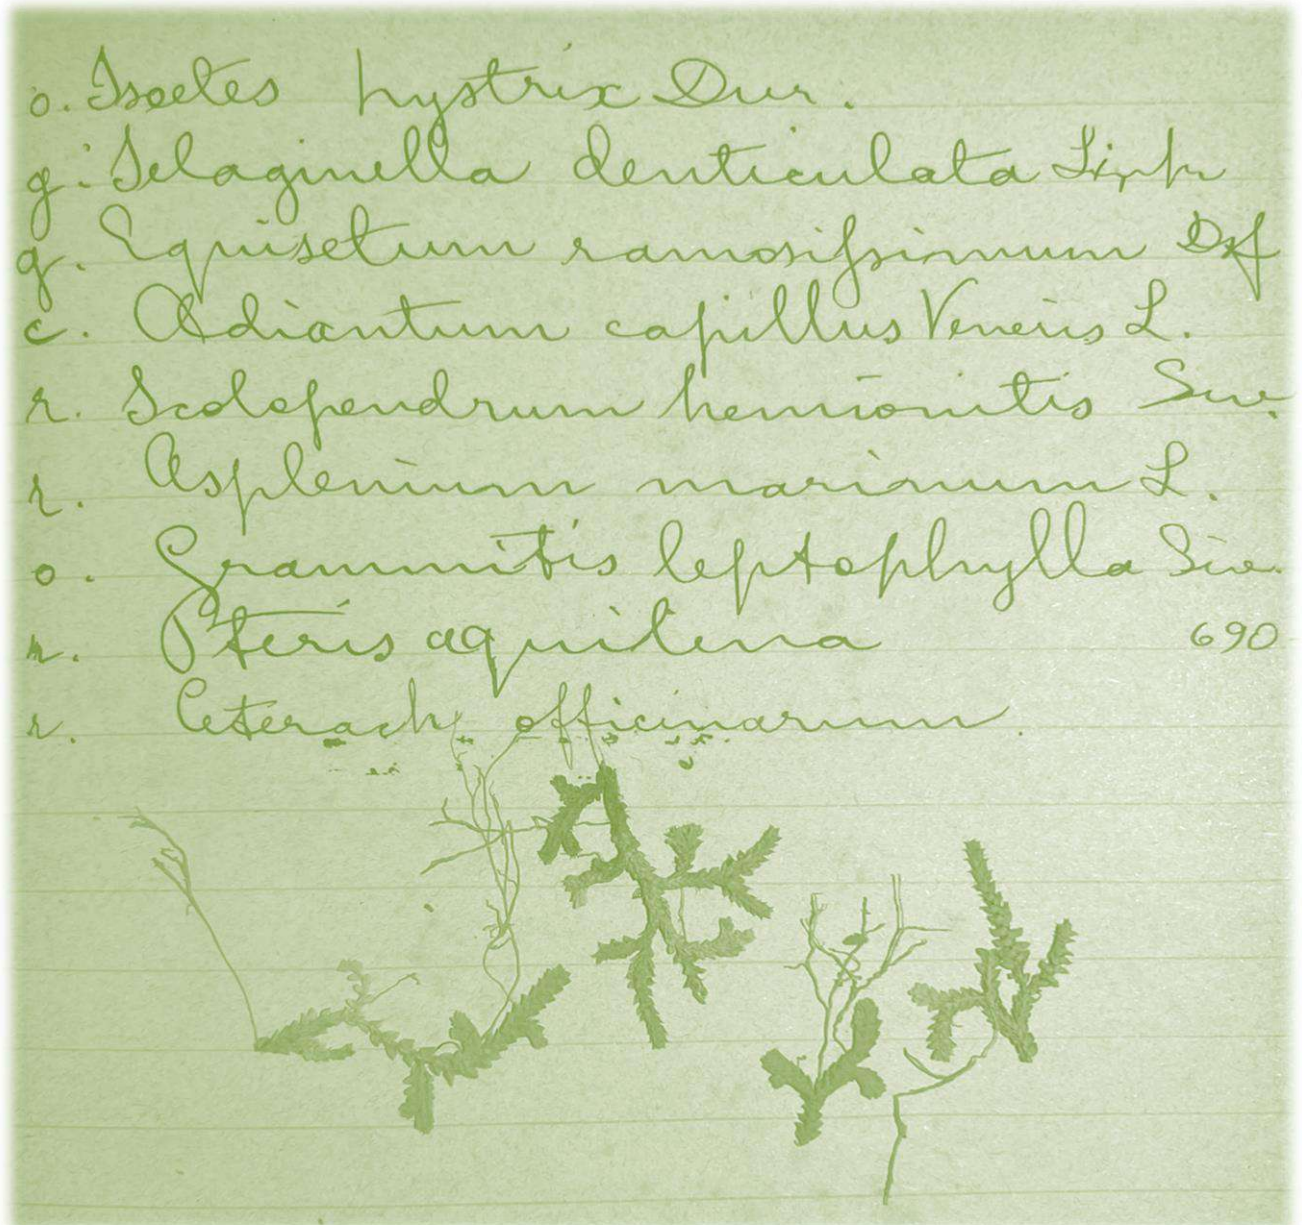 o. Isoetes hystrix Dur.
g. Selaginella denticulata Link
q. Equisetum ramosissimum Dsf
c. Adiantum capillus Veneris L.
r. Scolopendrum hemionitis Sw.
r. Asplenium marinum L.
o. Grammitis leptophylla Sw.
r. Pteris aquilina 690
r. Ceterach officinarum.